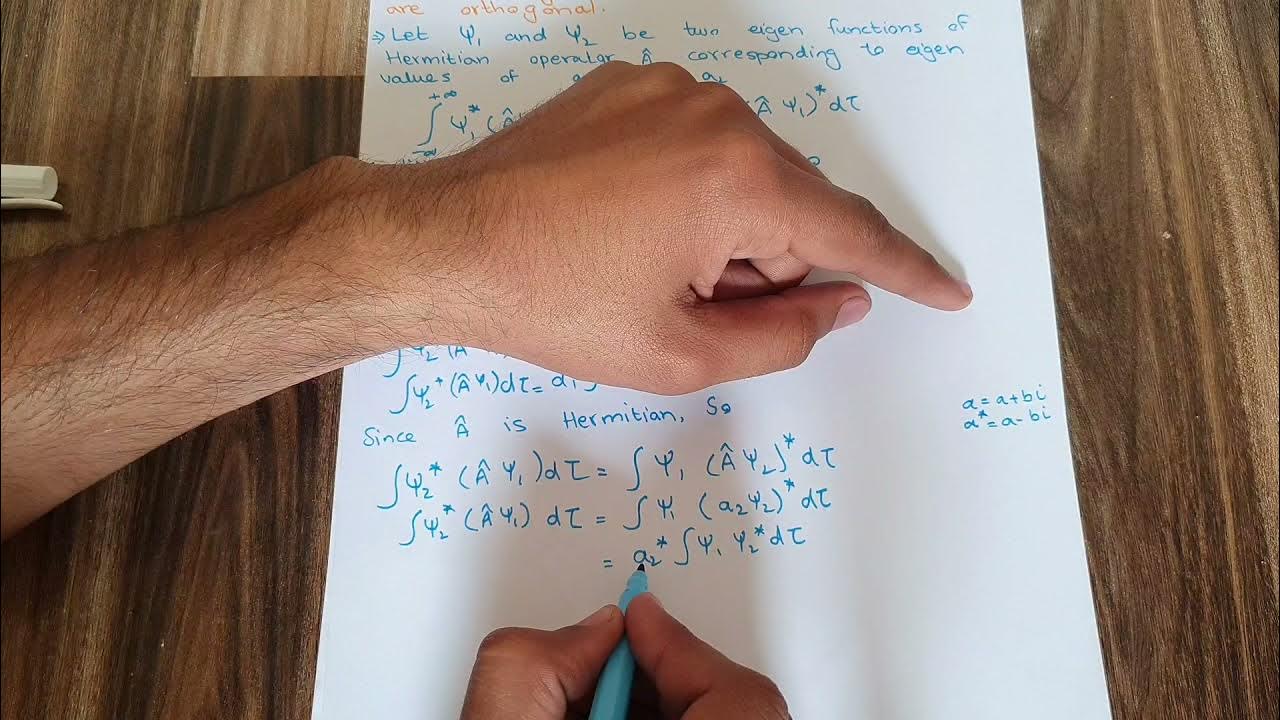 are orthogonal.
⇒ Let Ψ₁ and Ψ₂ be two eigen functions of
Hermitian operator Â corresponding to eigen
values of a₂
+∞
∫ Ψ₁* (Â Â Ψ₁)* dτ
-∞
∫ Ψ₂ (Â
∫ Ψ₂* (Â Ψ₁) dτ = a₁ ∫
Since Â is Hermitian, So
a = a + bi
a* = a - bi
∫ Ψ₂* (Â Ψ₁) dτ = ∫ Ψ₁ (Â Ψ₂)* dτ
∫ Ψ₂* (Â Ψ₁) dτ = ∫ Ψ₁ (a₂Ψ₂)* dτ
= a₂* ∫ Ψ₁ Ψ₂* dτ